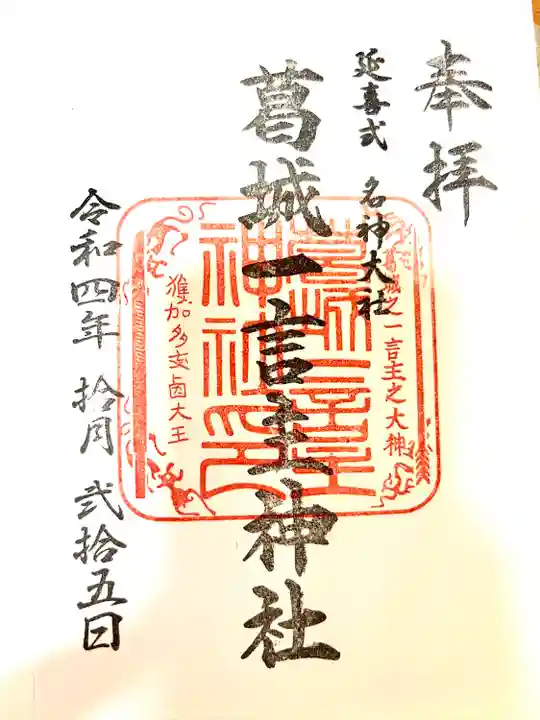 奉拝
延喜式 名神大社
葛城一言主神社
葛城之一言主之大神
葛城一言主神社印
獲加多支鹵大王
令和四年 拾月 弐拾五日